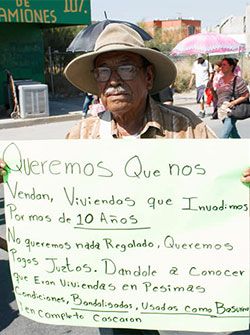 DE
CAMIONES
107
Queremos Que nos
Vendan, Viviendas que Invadimos
Por mas de 10 Años
No queremos nada Regalado, Queremos
Pagos Justos. Dandole a Conocer
que Eran Viviendas en Pesimas
Condiciones, Bandalisadas, Usadas como Basure
en completo Cascaron